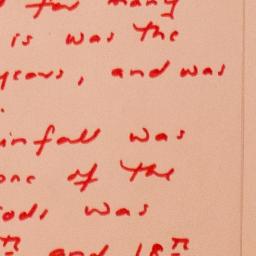 for many
is was the
years, and was
infall was
one of the
ods was
and 18th